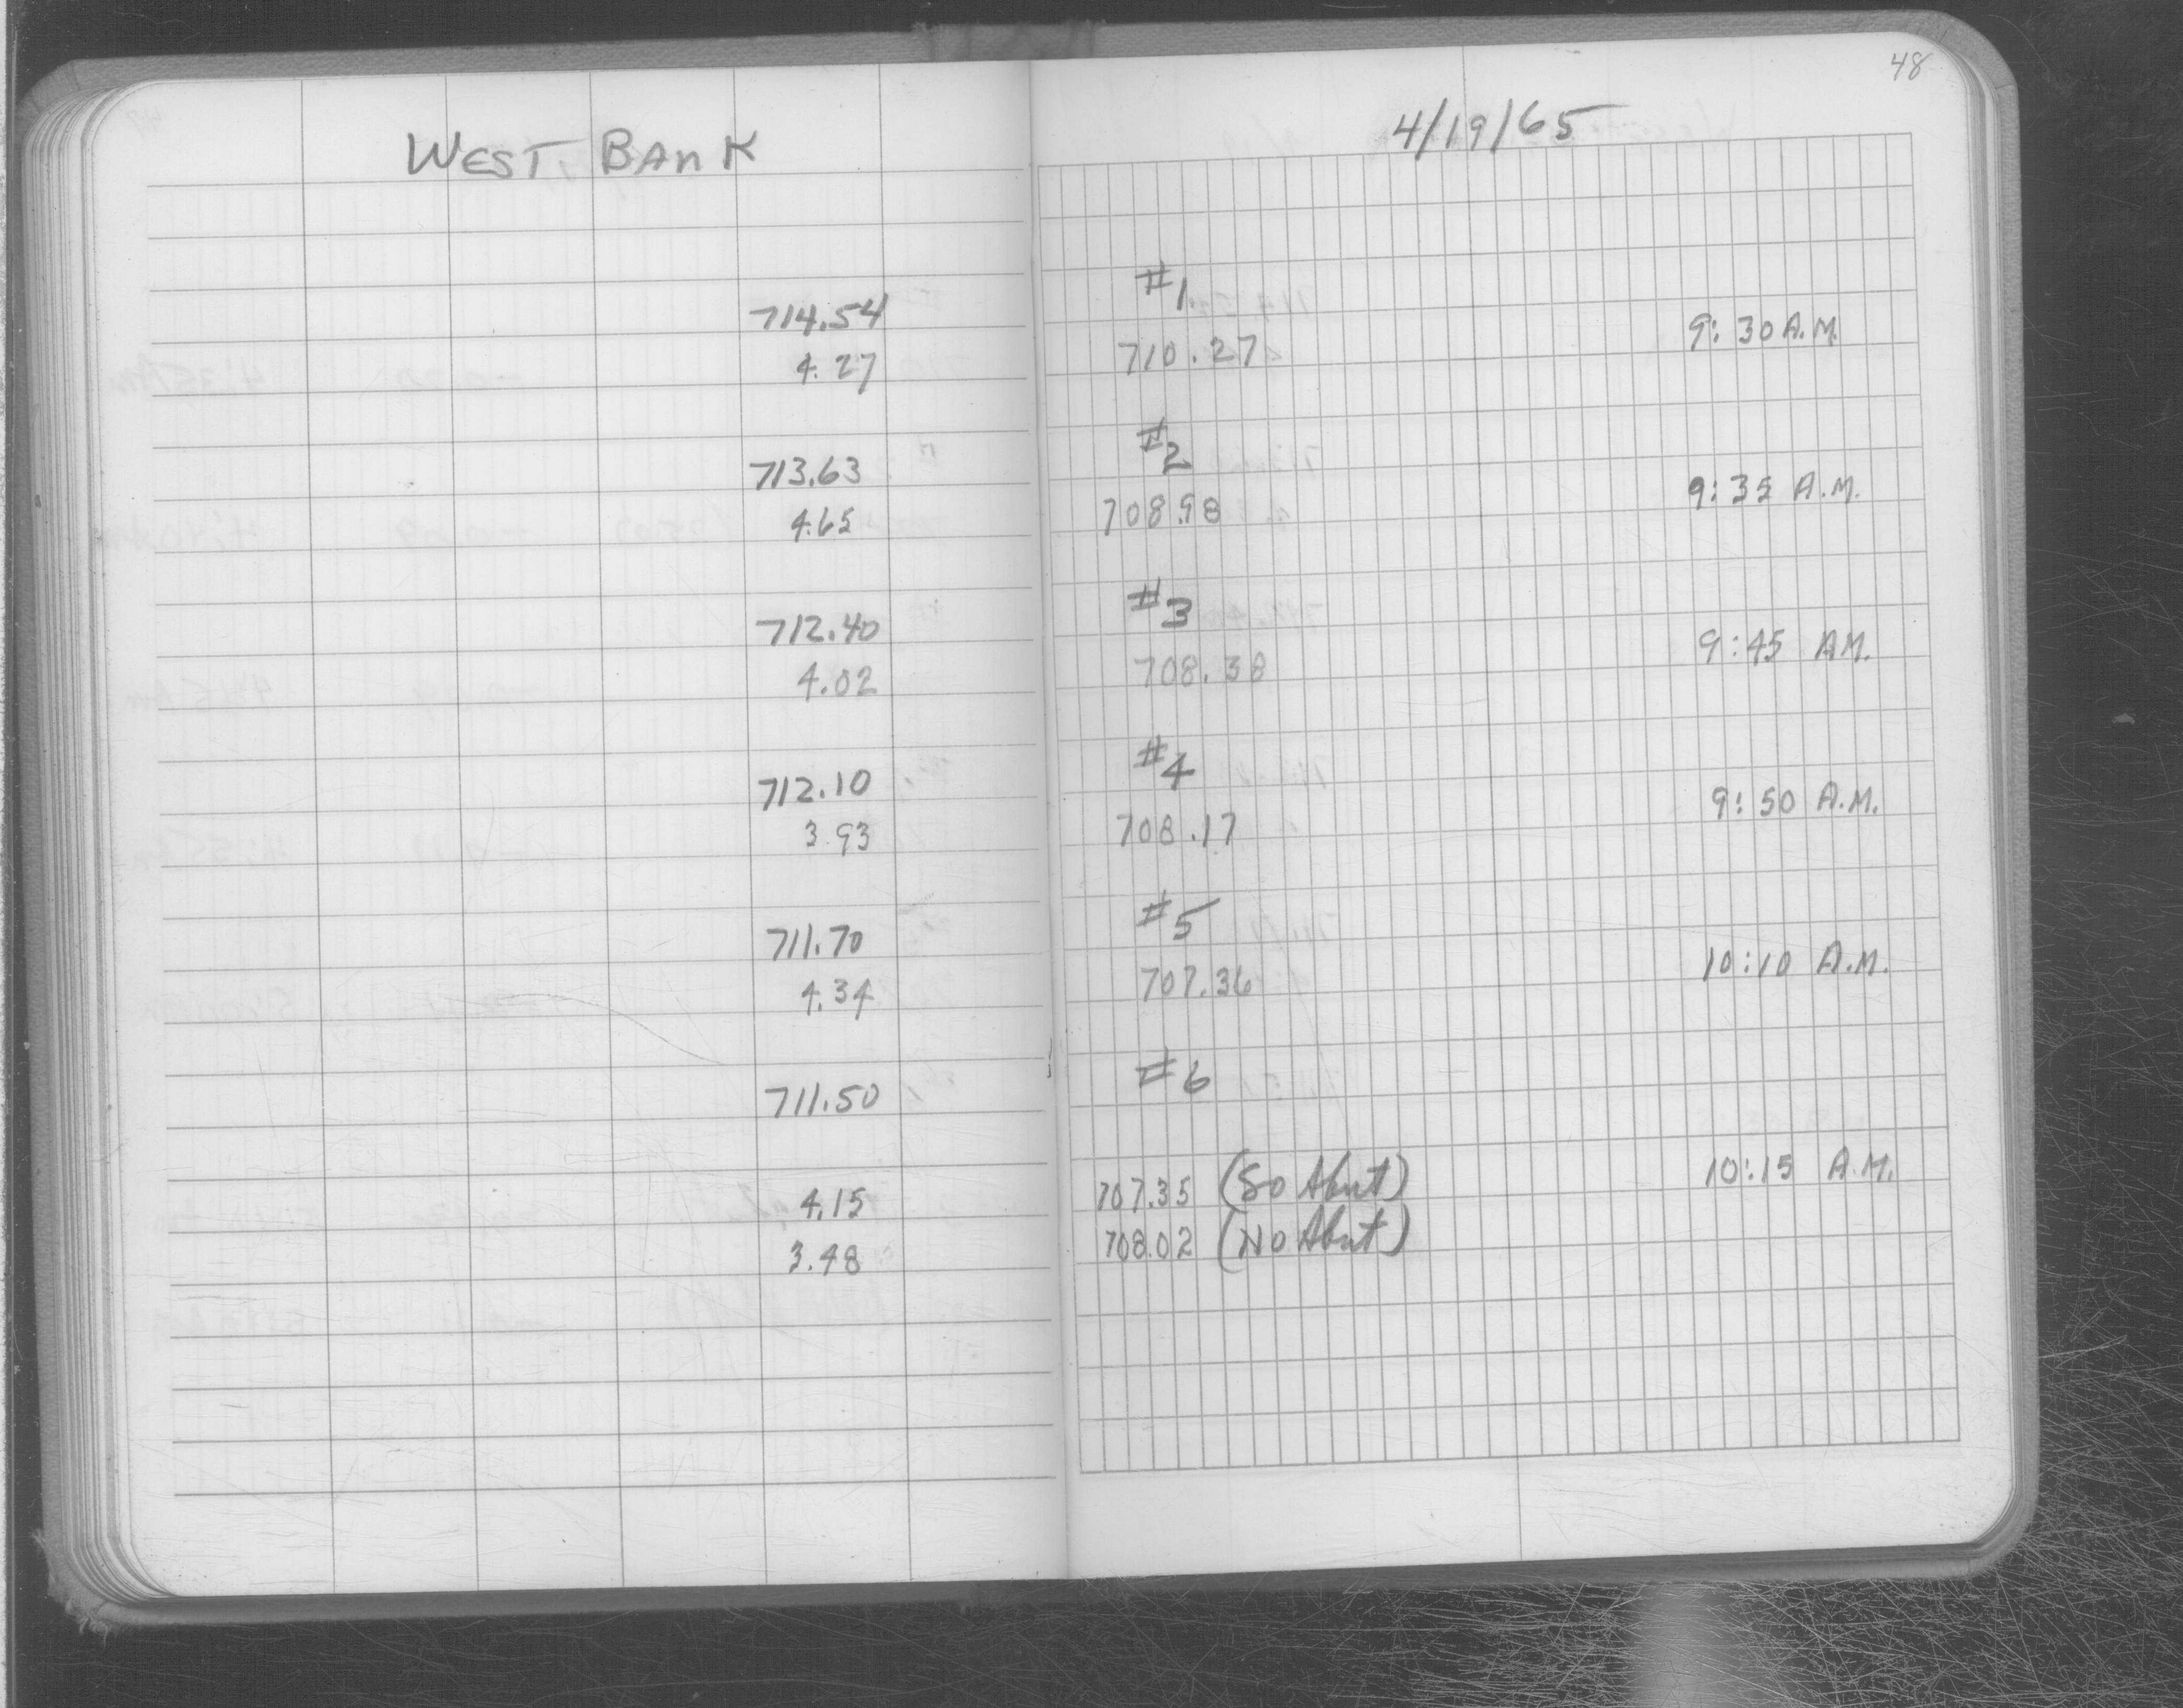 48
WEST BANK
4/19/65
#1
714.54
4.27
710.27
9:30 A.M.
#2
713.63
4.65
708.98
9:35 A.M.
#3
712.40
4.02
708.38
9:45 AM.
#4
712.10
3.93
708.17
9:50 A.M.
#5
711.70
4.34
707.36
10:10 A.M.
#6
711.50
4.15
707.35 (So Abut)
10:15 A.M.
3.48
708.02 (No Abut)